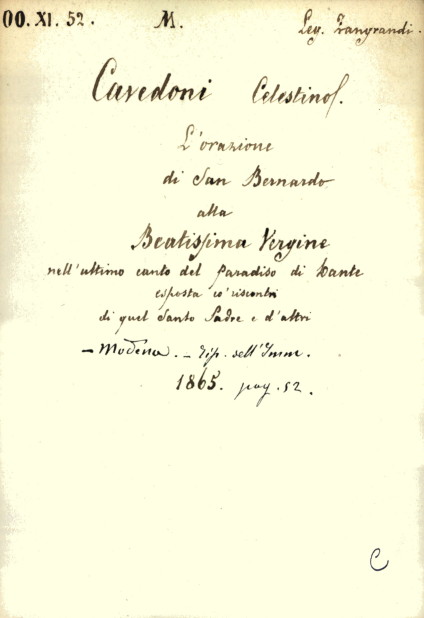 OO. XI. 52. M. Leg. Frangrandi.
Cavedoni Celestino.
L'orazione
di San Bernardo
alla
Beatissima Vergine
nell'ultimo canto del Paradiso di Dante
esposta co' riscontri
di quel Santo Padre e d'altri
– Modena. – Tip. dell'Imm.
1865. pag. 52.
C